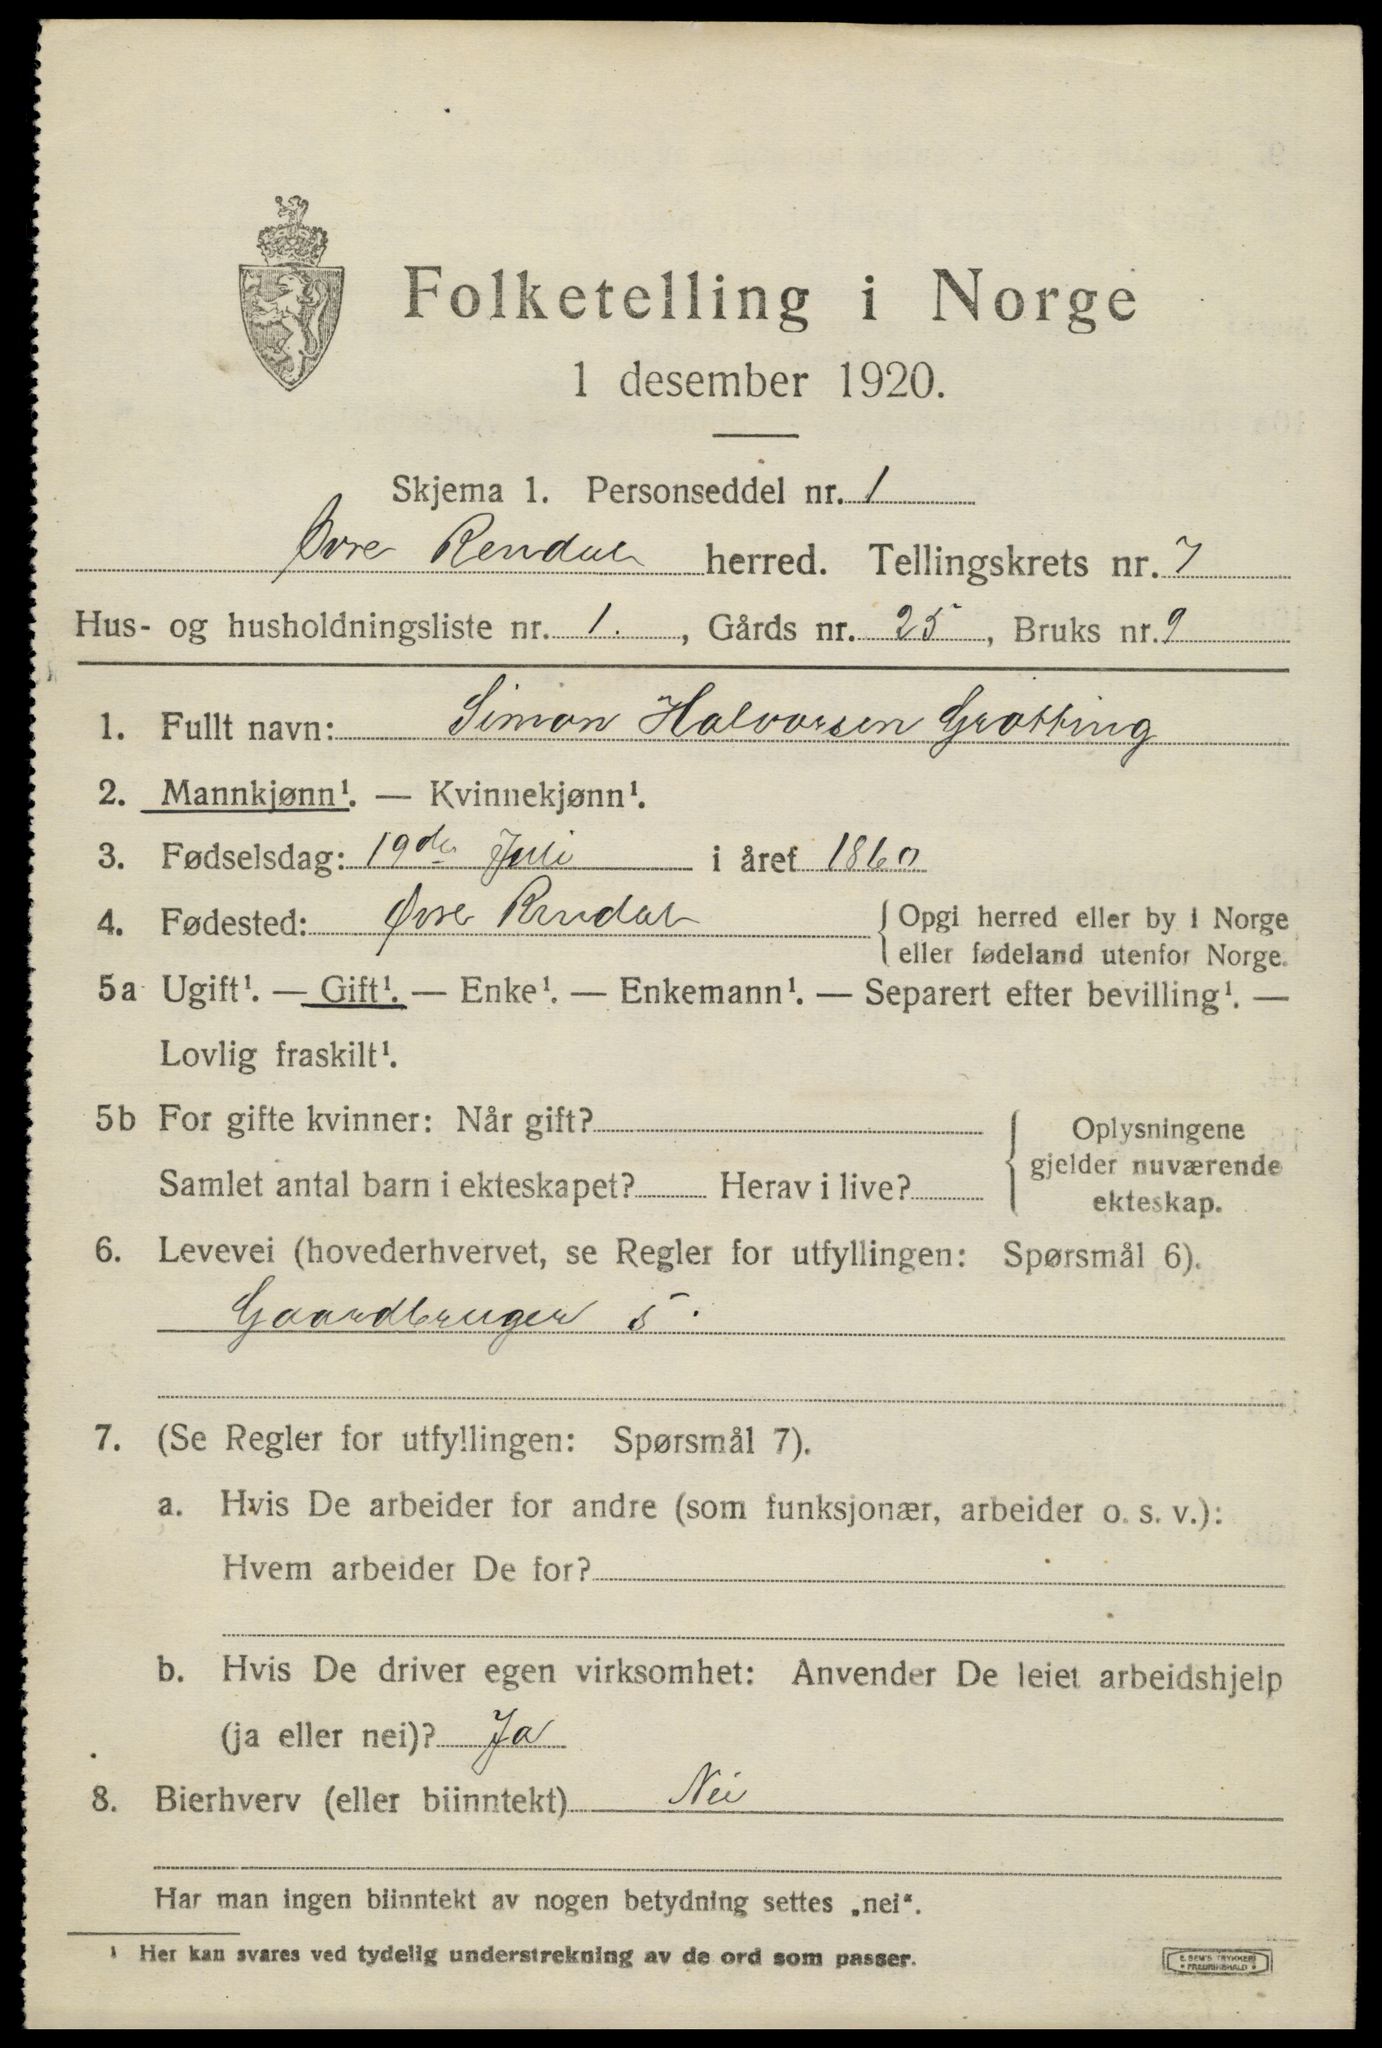 Folketelling i Norge
1 desember 1920.
Skjema 1. Personseddel nr. 1
Øvre Rendal herred. Tellingskrets nr. 7
Hus- og husholdningsliste nr. 1. , Gårds nr. 25 , Bruks nr. 9
1. Fullt navn: Simon Halvorsen Grøtting
2. Mannkjønn¹. — Kvinnekjønn¹.
3. Fødselsdag: 19de Juli i året 1860
4. Fødested: Øvre Rendal { Opgi herred eller by i Norge
eller fødeland utenfor Norge.
5a Ugift¹. — Gift¹. — Enke¹. — Enkemann¹. — Separert efter bevilling¹. —
Lovlig fraskilt¹.
5b For gifte kvinner: Når gift?
Samlet antal barn i ekteskapet? Herav i live?
{ Oplysningene
gjelder nuværende
ekteskap.
6. Levevei (hovederhvervet, se Regler for utfyllingen: Spørsmål 6).
Gaardbruger S.
7. (Se Regler for utfyllingen: Spørsmål 7).
a. Hvis De arbeider for andre (som funksjonær, arbeider o. s. v.):
Hvem arbeider De for?
b. Hvis De driver egen virksomhet: Anvender De leiet arbeidshjelp
(ja eller nei)? Ja
8. Bierhverv (eller biinntekt) Nei
Har man ingen biinntekt av nogen betydning settes „nei“.
¹ Her kan svares ved tydelig understrekning av de ord som passer.
E. SEM'S TRYKKERI
FREDRIKSHALD